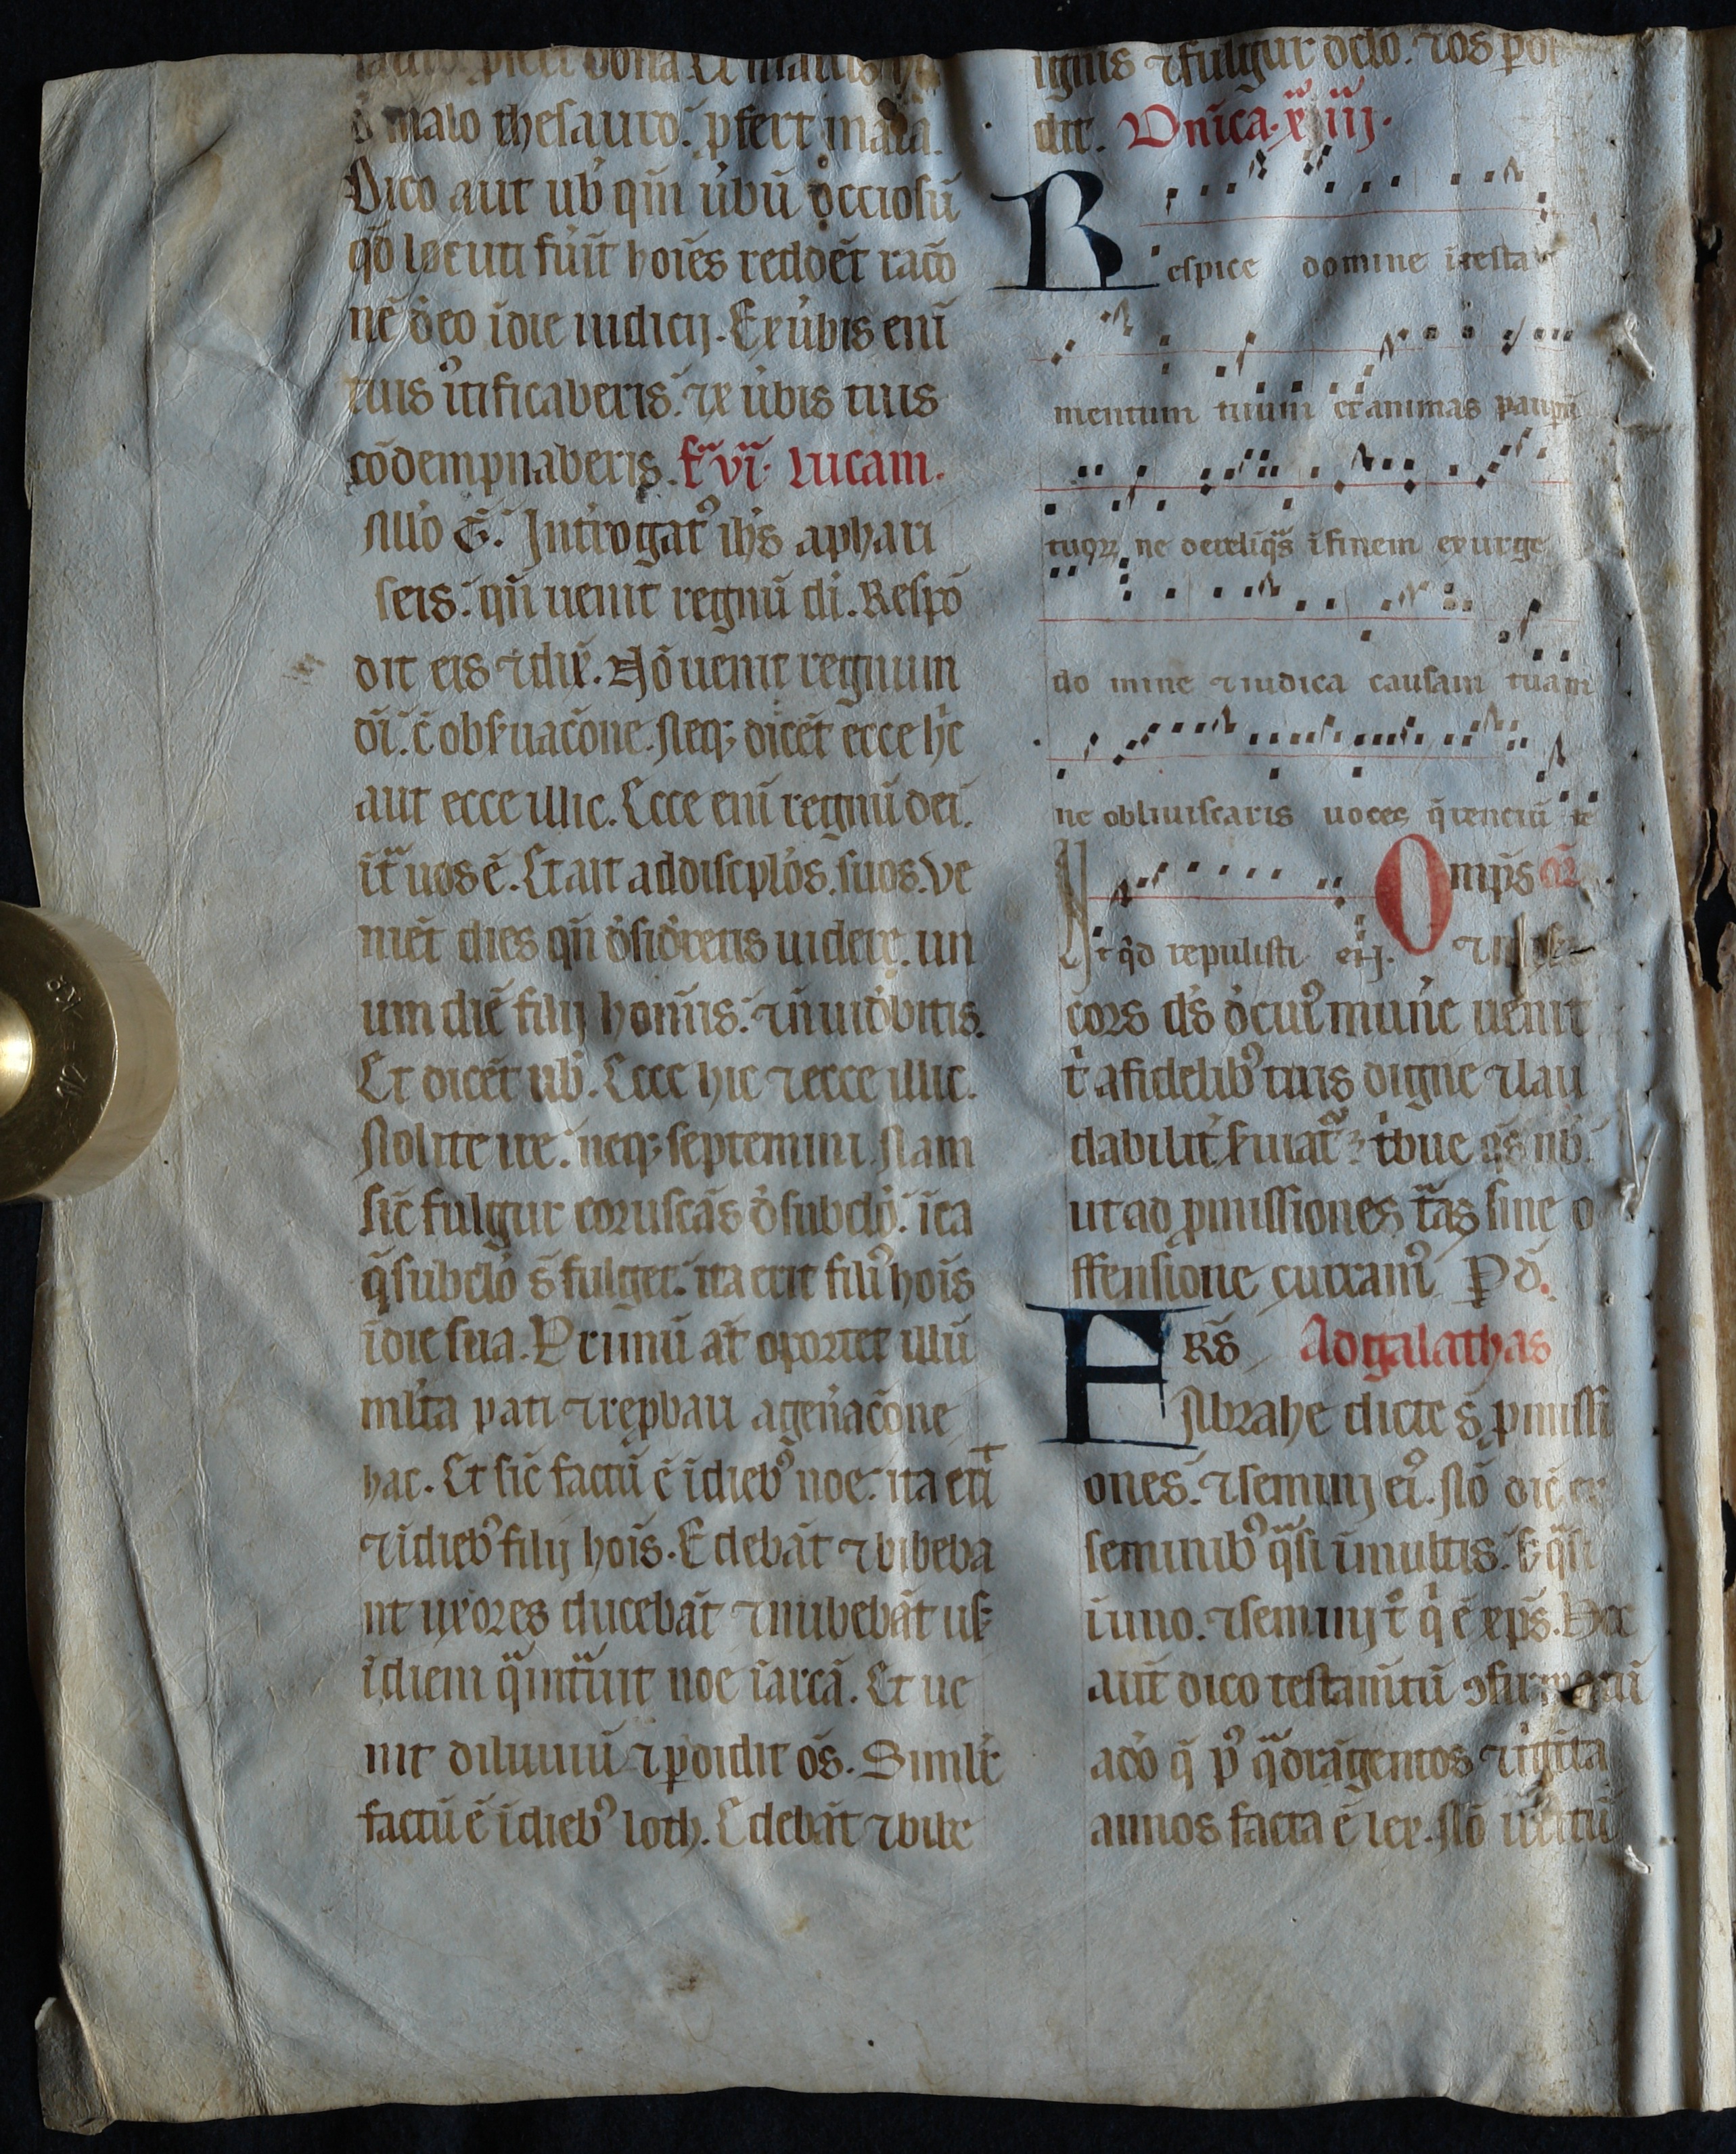 ꝺ malo theſauro. ꝓfert mala.
Dico aut̄ ub̓ qm̄ ūbū occioſū
qd̄ locuti fūit̄ hoīes reddēt raco᷑
nē deo ı̄die iudicij. Ex ūbis enī
tuis iu̓tificaberis. ⁊ex ūbis tuis
cōdempnaberis. f̄ vı̄. lucam.
Illo t̄. Int̓rogat᷒ ih̓s aphari
ſeis. qn̄ uenit regnū di. Reſpō
dit eis ⁊dix̄. Nō uenit regnum
dī. c̄ obſ̓uacōne. Neq; dicēt ecce hic
aut ecce illic. Ecce enī regnū dei.
īt̄ uos ē. Et ait addiſciplōs. ſuos. Ve
niēt dies qn̄ deſid̓etis uidere. un
um diē filij homīs. ⁊n̄ uideb̓itis.
Et dicēt ub̓. Ecce hic ⁊ecce illic.
Nolite ire. neq; ſectemini. Nam
ſic̄ fulgur coruſcās d̓ſubcelo. īea
q̄ſubcelo ſ̄ fulget. ita erit fili᷒ hoīs
ı̄die ſua. Primū at̄ oportet illū
mlt̓a pati ⁊rep̱bari ageñacōne
hac. Et ſic̄ factū ē ı̄dieb᷒ noe. ita erit
⁊ı̄dieb᷒ filij hoīs. Edebāt ⁊bibeba
nt uxores ducebāt ⁊nubebāt uſ
ı̄diem qua intᷓuit noe ı̄arcā. Et ue
nit diluuiū ⁊ꝑdidit oēs. Simil̓r
factū ē ı̄dieb᷒ loth. Edebāt ⁊bibe
ignis ⁊ſulgur ꝺcelo. ⁊os ꝑdi
dit. Dn̄ica. x̄ııı̄j.
Reſpice domine ı̄teſta
mentum tuum et animas pauꝑū
tuoꝝ ne derelīqᷓs ı̄finem exurge
do mine ⁊iudica cauſam tuam
ne obliuiſcaris uoces q̄renciū te
Ut qd̓ repuliſti ı̄fi. Omp̄s
cors ds̄ d̓cui᷒ mun̓e uenit
t̓ afidelib᷒ tuis digne ⁊lau
dabilit̓ ſ̓uiatᷓ t̓bue q̄s nb̓.
ut ad ꝓmiſſiones tᷓas ſine o
ffenſione curram᷒ P d̄.
F Rs̄ Ad galathas
Abrahe dicte s̄ ꝓmiſſi
ones. ⁊ſemini ei᷒. Nō dic̄
ſeminib᷒ qᷓſi īmultis. ſ; qᷓſi
īuno. ⁊ſemini t̓ q̓ ē xp̄s. Hoc
aut̄ dico teſtam̄tū ꝯfirmatū
adō q̄ p᷒ qᷓdrāgentos ⁊t̓gīta
annos facta ē lex. Nō irritū